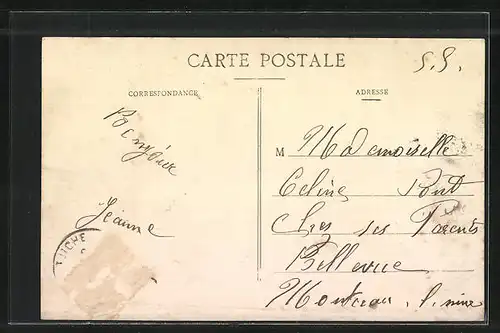 CARTE POSTALE
S.S.
CORRESPONDANCE
ADRESSE
Jeanne
M Mademoiselle
Celine Pont
Chez ses Parents
Bellevue
Montceau . l. mine